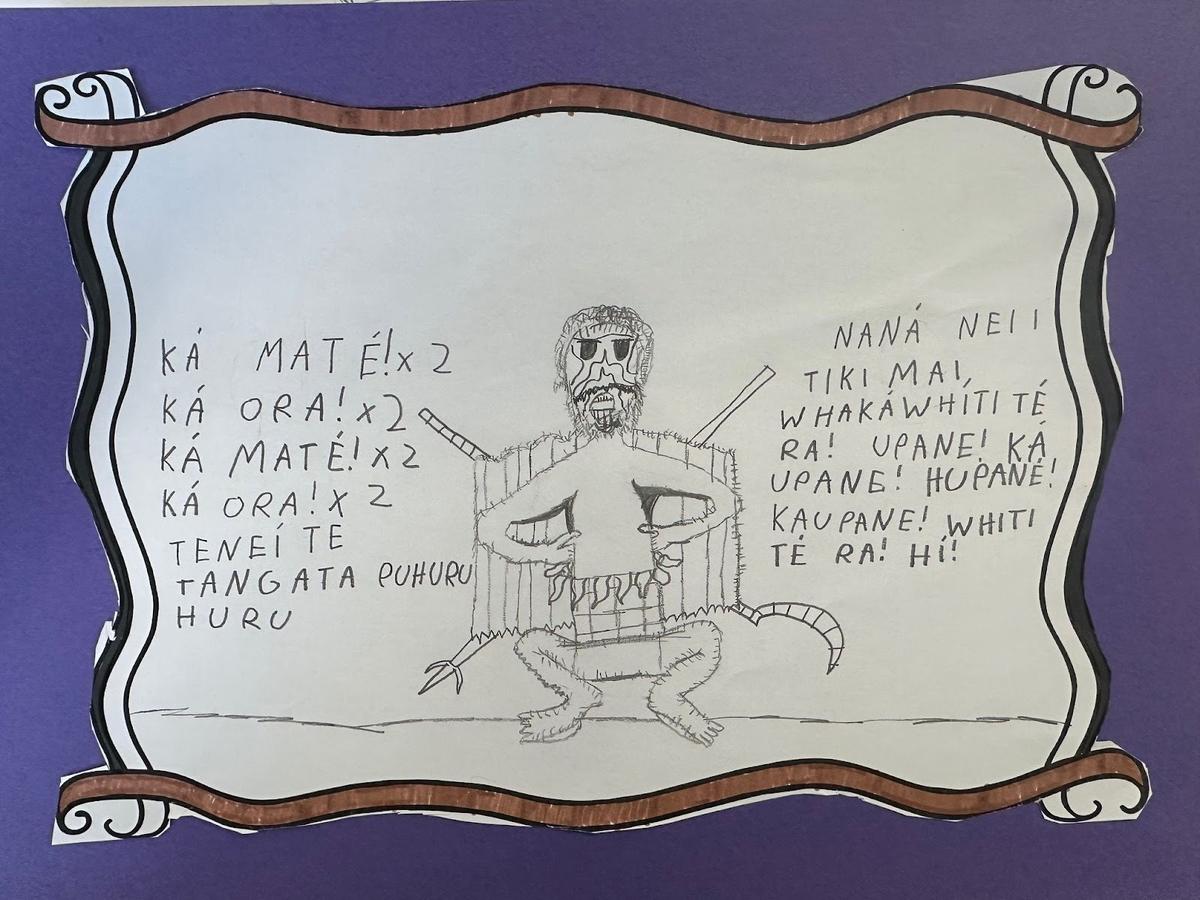 KÁ MATÉ! x 2
KÁ ORA! x 2
KÁ MATÉ! x 2
KÁ ORA! x 2
TENEÍ TE
TANGATA PUHURU
HURU
NANÁ NEI I
TIKI MAI,
WHAKÁWHÍTI TÉ
RA! UPANE! KÁ
UPANE! HUPANÉ!
KAUPANE! WHITI
TÉ RA! HÍ!